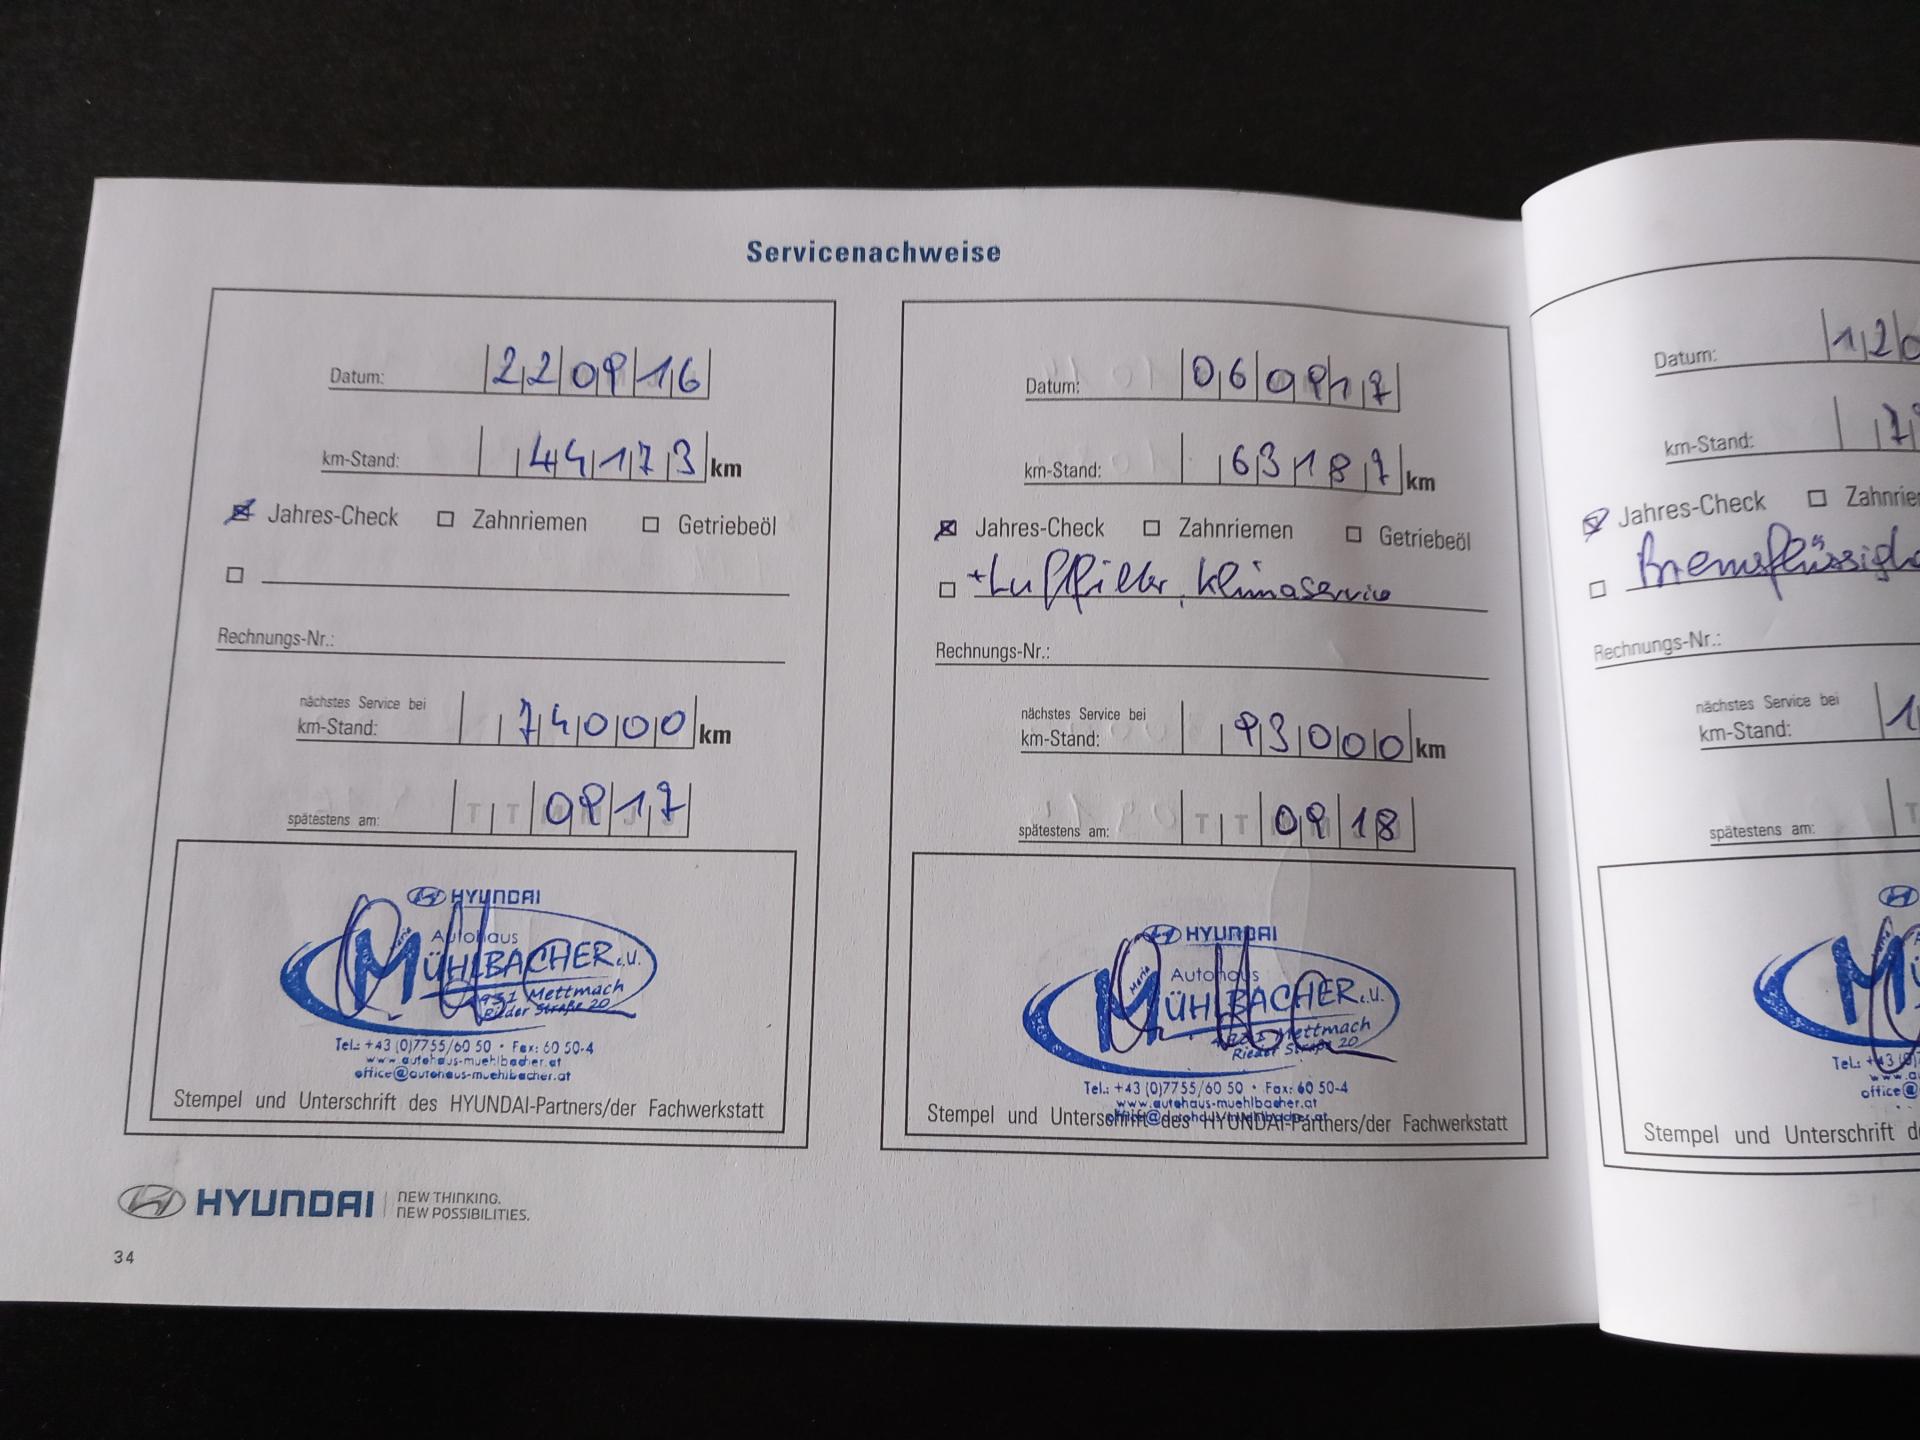 Servicenachweise
Datum: 22 09 16
km-Stand: 44173 km
Jahres-Check Zahnriemen Getriebeöl
Rechnungs-Nr.:
nächstes Service bei
km-Stand: 74000 km
spätestens am: 09 17
HYUNDAI
Autohaus
Maria
MÜHLBACHER e.U.
4931 Mettmach
Rieder Straße 20
Tel.: +43 (0)7755/60 50 • Fax: 60 50-4
www.autohaus-muehlbacher.at
office@autohaus-muehlbacher.at
Stempel und Unterschrift des HYUNDAI-Partners/der Fachwerkstatt
Datum: 06 09 17
km-Stand: 63187 km
Jahres-Check Zahnriemen Getriebeöl
+Luftfilter, Klimaservice
Rechnungs-Nr.:
nächstes Service bei
km-Stand: 93000 km
spätestens am: T T 09 18
HYUNDAI
Autohaus
Maria
MÜHLBACHER e.U.
4931 Mettmach
Rieder Straße 20
Tel.: +43 (0)7755/60 50 • Fax: 60 50-4
www.autohaus-muehlbacher.at
office@autohaus-muehlbacher.at
Stempel und Unterschrift des HYUNDAI-Partners/der Fachwerkstatt
Datum: 12
km-Stand: 7
Jahres-Check
Rechnungs-Nr.:
nächstes Service bei
km-Stand: 1
spätestens am:
Tel.: +43
office@
Stempel und Unterschrift
HYUNDAI NEW THINKING.
NEW POSSIBILITIES.
34